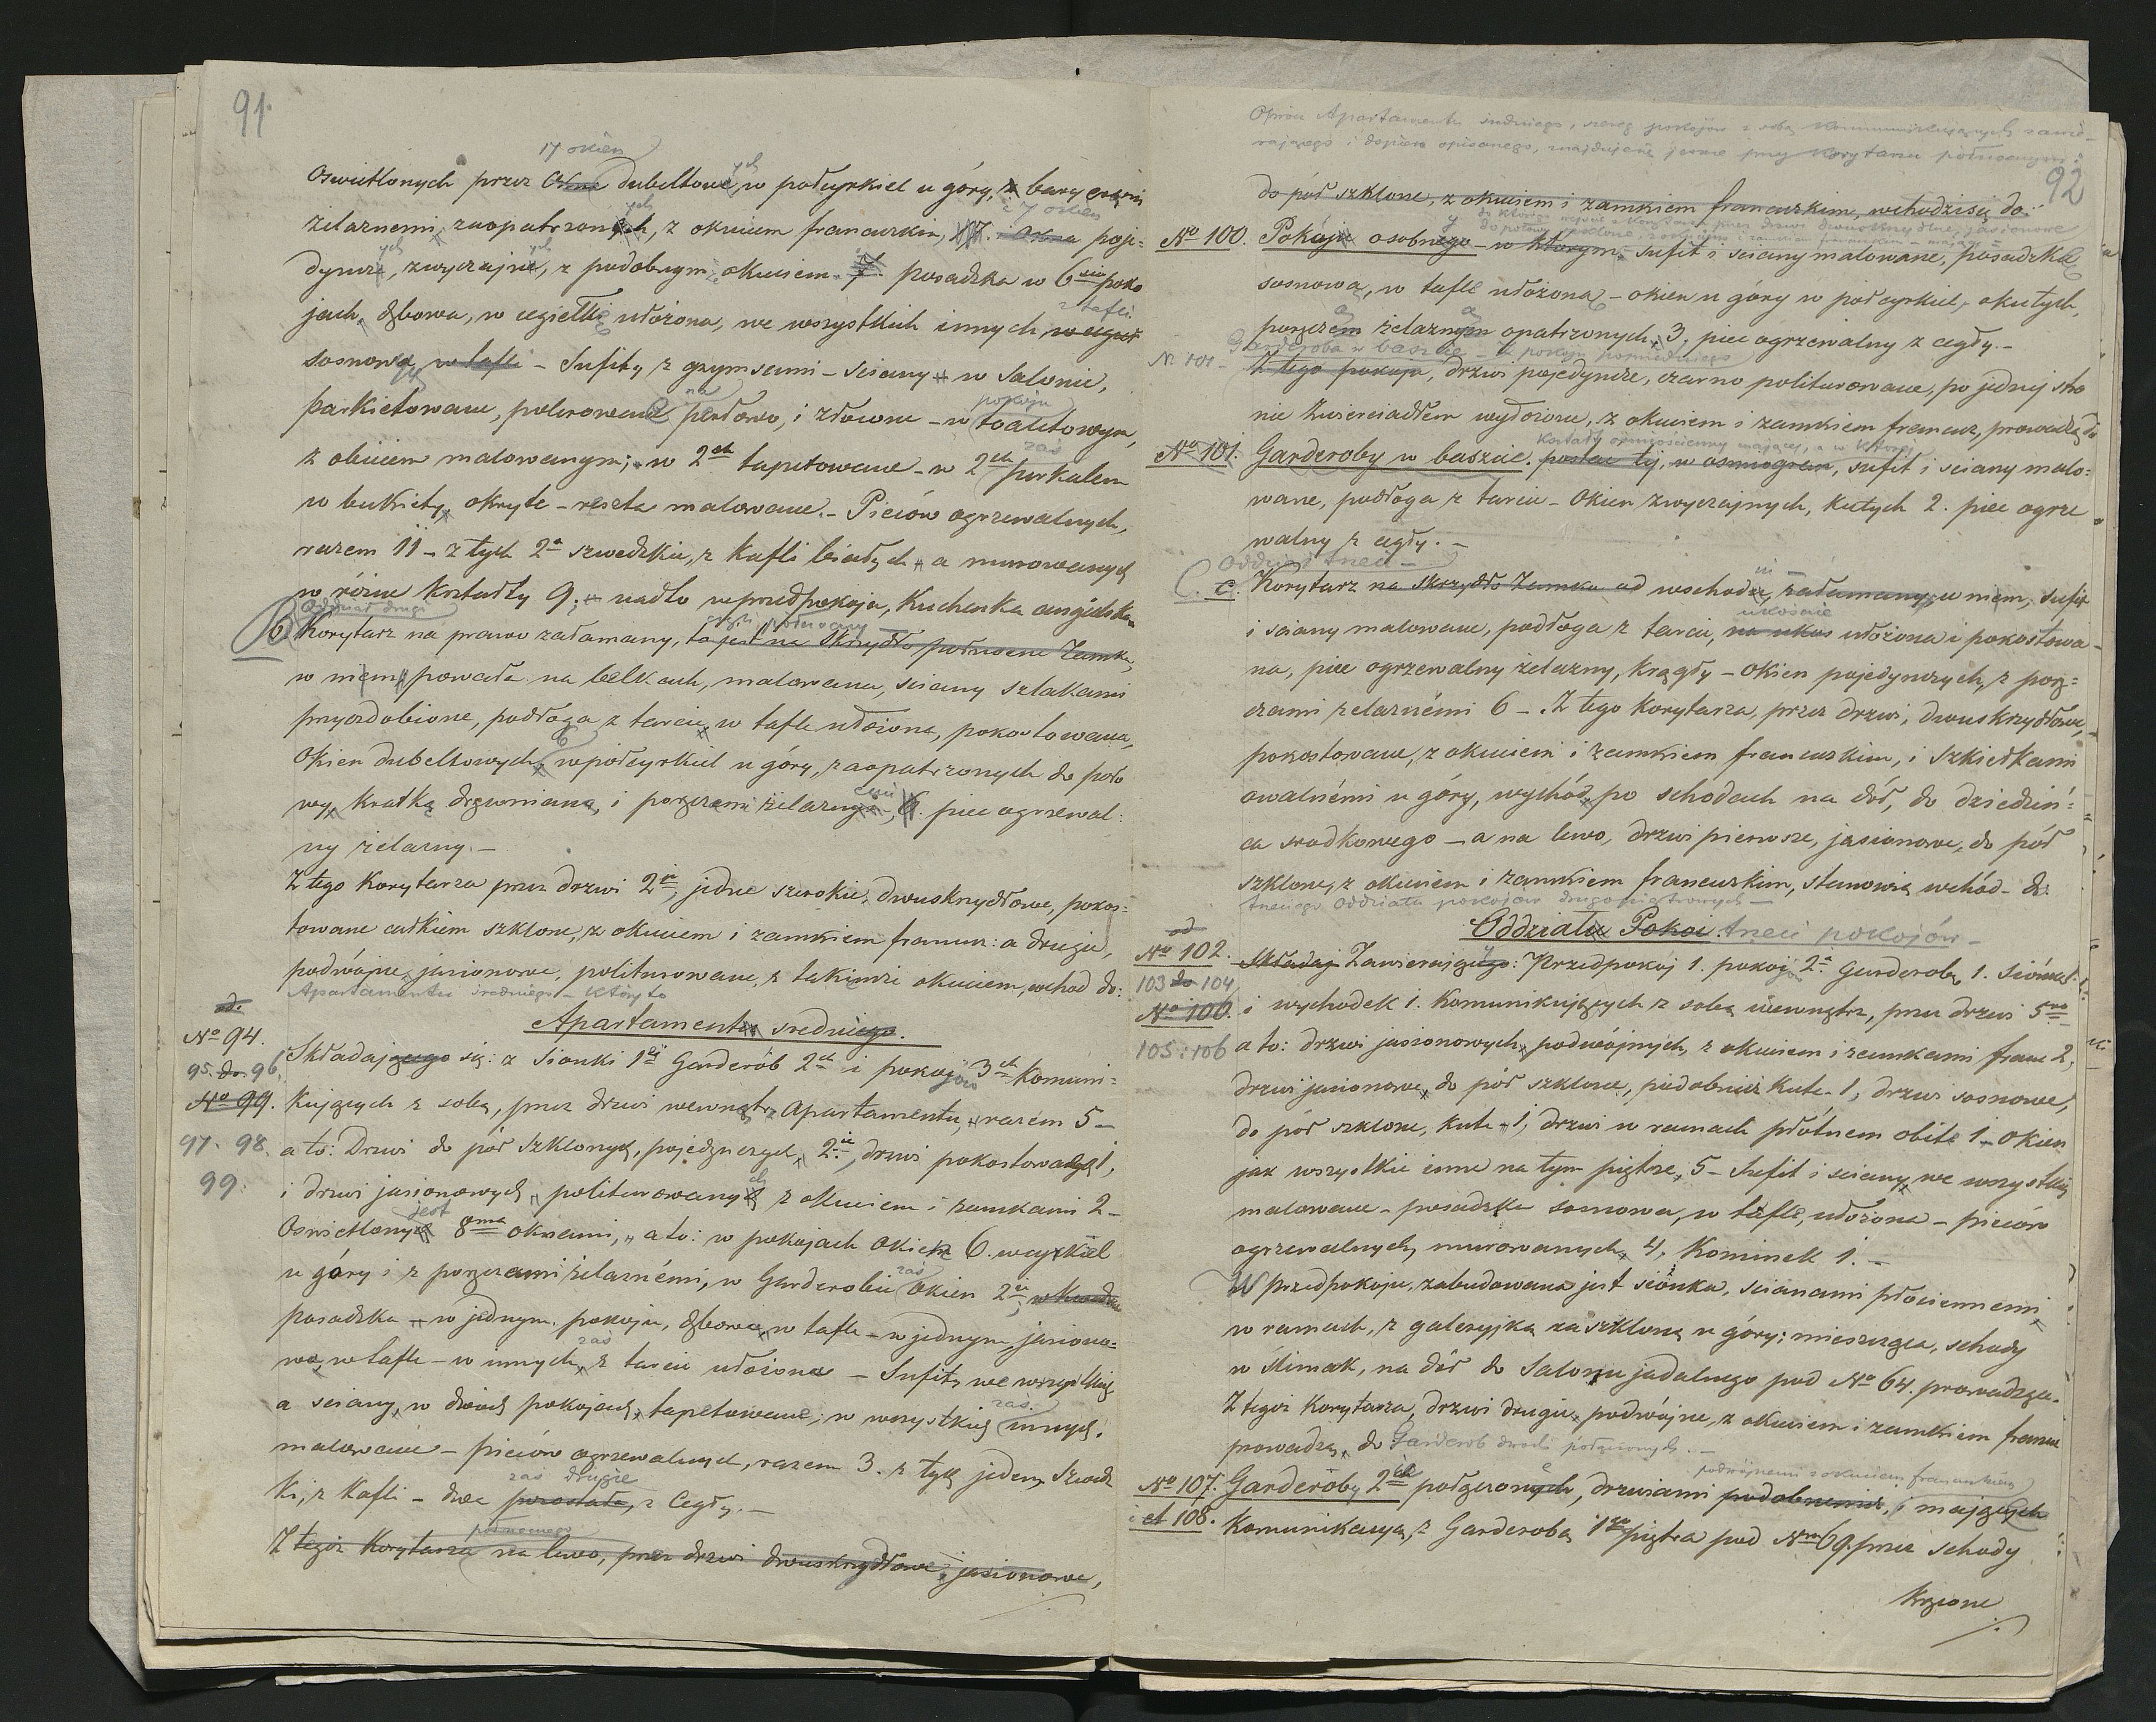 91.
17 okien
Oswietlonych przez Okna dubeltowe, w półcyrkiel u góry, z
żelaznemi, zaopatrzonych, z okuciem francuzkim, 17. Okna poje-
7 okien
dyncze, zwyczajne, z podobnym okuciem 7. posadzka w 6ciu poko
jach, dębowa, w cegiełkę ułożona, we wszystkich innych w cegieł
z tafli
sosnowa, w tafli - Sufity z gzymsami - sciany w Salonie,
parkietowane, polerowane na perłowo, i złocone - w pokoju toaletowym,
z obiciem malowanym; w 2ch tapetowane - w 2ch zaś perkalem
w bukiety, okryte - reszta malowane. - Pieców ogrzewalnych,
razem 11 - z tych 2a szwedzkie, z kafli białych, a murowanych
w różne kształty 9; - nadto w przedpokoju, Kuchenka angielska.
Oddział drugi
b. Korytarz na prawo załamany, to jest na Skrzydło południowe Zamku,
w niem powała na belkach, malowana, sciany szlakami
przyozdobione, podłoga z tarcic, w tafle ułożona, pokostowana,
Okien dubeltowych, 6 w półcyrkiel u góry, zaopatrzonych do poło
wy, kratką drewnianą, i poręczami żelaznymi, 6. piec ogrzewal:
ny żelazny. -
Z tego Korytarza przez drzwi 2ie, jedne szerokie, dwuskrzydłowe, pokos:
towane całkiem szklone, z okuciem i zamkiem francuz: a drugie,
podwójne, jasionowe, politurowane, z takimże okuciem, wchod do:
Apartamentu sredniego - który to
Apartamentu sredniego.
od
No 94.
95. do 96.
No 99.
97. 98.
99.
Składającego się: z Sionki 1ej Garderób 2ch i pokojów 3ch Komuni-
kujących z sobą, przez drzwi wewnątrz Apartamentu, razem 5 -
a to: Drzwi do pół szklonych, pojedynczych, 2ie, drzwi pokostowanych 1,
i drzwi jasionowych, politurowanych z okuciem i zamkami 2 -
Oswietlony jest 8ma oknami, a to: w pokojach okien 6. w cyrkiel
u góry i z poręczami żelaznémi, w Garderobie zaś okien 2ie,
posadzka - w jednym pokoju, dębowa, w tafle - w jednym, jasiono=
wa, w tafle - w innych, zaś z tarcic ułożona - Sufity we wszystkich,
a sciany, w dwóch pokojach, tapetowane; w wszystkich zaś innych,
malowane - pieców ogrzewalnych, razem 3. z tych jeden, Szwedz
ki, z Kafli - dwa pozostałe, zaś drugie z Cegły. -
Z tegoż Korytarza na lewo, przez drzwi dwuskrzydłowe, jasionowe,
92
Oprócz Apartamentu sredniego, szereg pokojów z sobą Kommunikujących zawie-
rającego i dopiero opisanego, znajdują się jeszcze przy Korytarzu północnym:
do pół szklone, z okuciem i zamkiem francuzkim, wchodzi się do:
No 100. Pokóju osobnego - w którym, sufit i sciany malowane, posadzka
sosnowa, w tafle ułożona - okien u góry w półcyrkiel, okutych,
poręczem żelaznym opatrzonych, 3, piec ogrzewalny z cegły. -
N. 101 - Garderoba w baszcie - z pokoju poprzedniego
Z tego pokoju, drzwi pojedyncze, czarno politurowane, po jednej stro
nie Zwierciadłem wyłożone, z okuciem i zamkiem francuz, prowadzą do
No 101. Garderoby w baszcie. postac tej, w osmiogran, sufit i sciany malo=
kształt osmiościenny mającej, a w której
wane, podłoga z tarcic - Okien zwyczajnych, kutych 2. piec ogrze
walny z cegły. -
Oddział trzeci -
C. c. Korytarz na skrzydło Zamku od wschodu, załamany, w niem, sufit
i sciany malowane, podłoga z tarcic, na ukos ułożona i pokostowa-
ukośnie
na, piec ogrzewalny żelazny, krągły - okien pojedynczych, z porę=
czami żelaznémi 6 -. Z tego Korytarza, przez drzwi, dwuskrzydłowe,
pokostowane, z okuciem i zamkiem francuzkim, i Szkiełkami
owalnémi u góry, wychód, po schodach na dół, do dziedziń:
ca srodkowego - a na lewo, drzwi pierwsze, jasionowe, do pół
szklone, z okuciem i zamkiem francuzkim, stanowią wchód - do:
trzeciego Oddziału pokojów drugopiętrowych -
Oddziału Pokoi. trzeci pokojów -
od
No 102.
103 do 104
No 106.
105: 106
Składaj Zawierającego: Przedpokój 1. pokoje 2a Garderobę 1. Sionkę 1.
i wychodek 1. Komunikujących z sobą wewnątrz, przez drzwi 5ro
a to: drzwi jasionowych, podwójnych, z okuciem i zamkami franc 2,
drzwi jasionowe, do pół szklone, podobnież kute - 1, drzwi sosnowe,
do pół szklone, kute - 1, drzwi w ramach płótnem obite 1 - Okien
jak wszystkie inne na tym piętrze, 5 - Sufit i sciany, we wszystkich
malowane - posadzka sosnowa, w tafle, ułożona - pieców
ogrzewalnych, murowanych, 4, Kominek 1. -
W przedpokoju, zabudowana jest sionka, scianami płóciennemi
w ramach, z galeryjką zaszkloną u góry; mieszcząca, schody
w slimak, na dół do Salonu jadalnego pod No 64. prowadzące.
Z tegoż Korytarza, drzwi drugie, podwójne, z okuciem i zamkiem francuz
prowadzą, do Garderob dwóch połączonych. -
No 107. Garderoby 2ch połączonych, drzwiami podobnemiż, i mających
podwójnemi z okuciem francuzkiem
i et 108. Komunikacyą, z Garderobą 1go piętra pod Nrm 69. przez schody
Kręcone